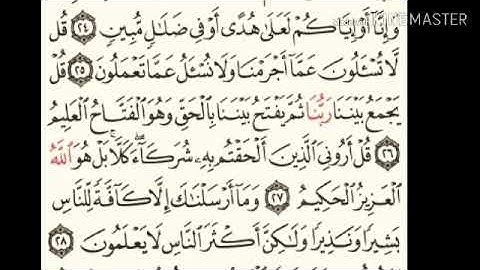 KINEMASTER
وَإِنَّآ أَوْ إِيَّاكُمْ لَعَلَىٰ هُدًى أَوْ فِى ضَلَٰلٍ مُّبِينٍ ٢٤ قُل
لَّا تُسْـَٔلُونَ عَمَّآ أَجْرَمْنَا وَلَا نُسْـَٔلُ عَمَّا تَعْمَلُونَ ٢٥ قُلْ
يَجْمَعُ بَيْنَنَا رَبُّنَا ثُمَّ يَفْتَحُ بَيْنَنَا بِٱلْحَقِّ وَهُوَ ٱلْفَتَّاحُ ٱلْعَلِيمُ
٢٦ قُلْ أَرُونِىَ ٱلَّذِينَ أَلْحَقْتُم بِهِۦ شُرَكَآءَ ۖ كَلَّا ۚ بَلْ هُوَ ٱللَّهُ
ٱلْعَزِيزُ ٱلْحَكِيمُ ٢٧ وَمَآ أَرْسَلْنَٰكَ إِلَّا كَآفَّةً لِّلنَّاسِ
بَشِيرًا وَنَذِيرًا وَلَٰكِنَّ أَكْثَرَ ٱلنَّاسِ لَا يَعْلَمُونَ ٢٨